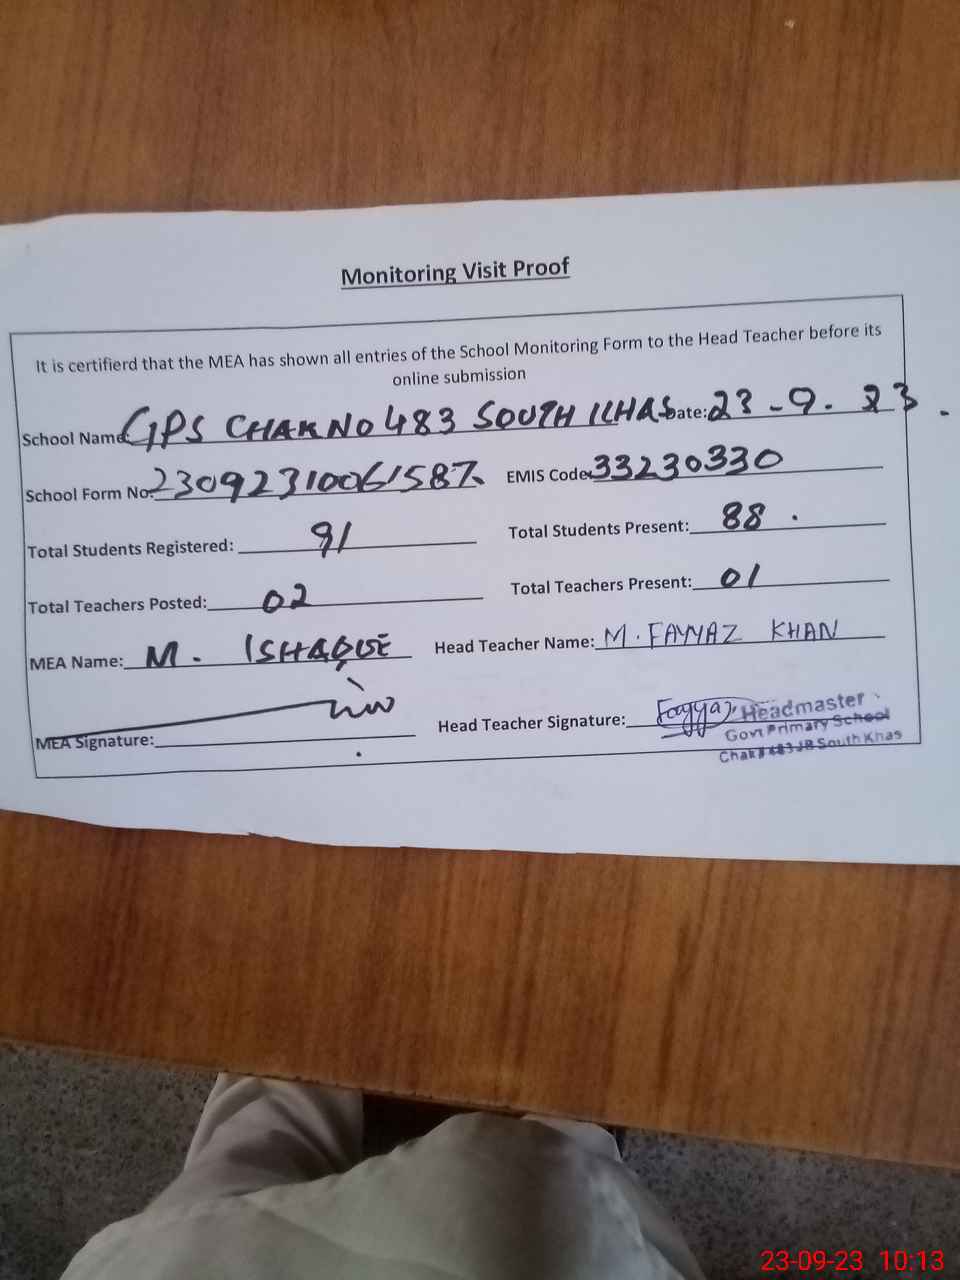 Monitoring Visit Proof
It is certifierd that the MEA has shown all entries of the School Monitoring Form to the Head Teacher before its
online submission
School Name GPS CHAK NO 483 SOUTH KHAS Date: 23-9.23.
School Form No: 23092310061587. EMIS Code: 33230330
Total Students Registered: 91 Total Students Present: 88.
Total Teachers Posted: 02 Total Teachers Present: 01
MEA Name: M. ISHAQUE Head Teacher Name: M. FAYYAZ KHAN
MEA Signature: Head Teacher Signature: Fayyaz
Headmaster
Govt Primary School
Chak # 483 JB South Khas
23-09-23 10:13